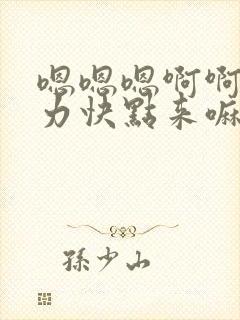 嗯嗯嗯啊啊
力快點来嘛
孫少山